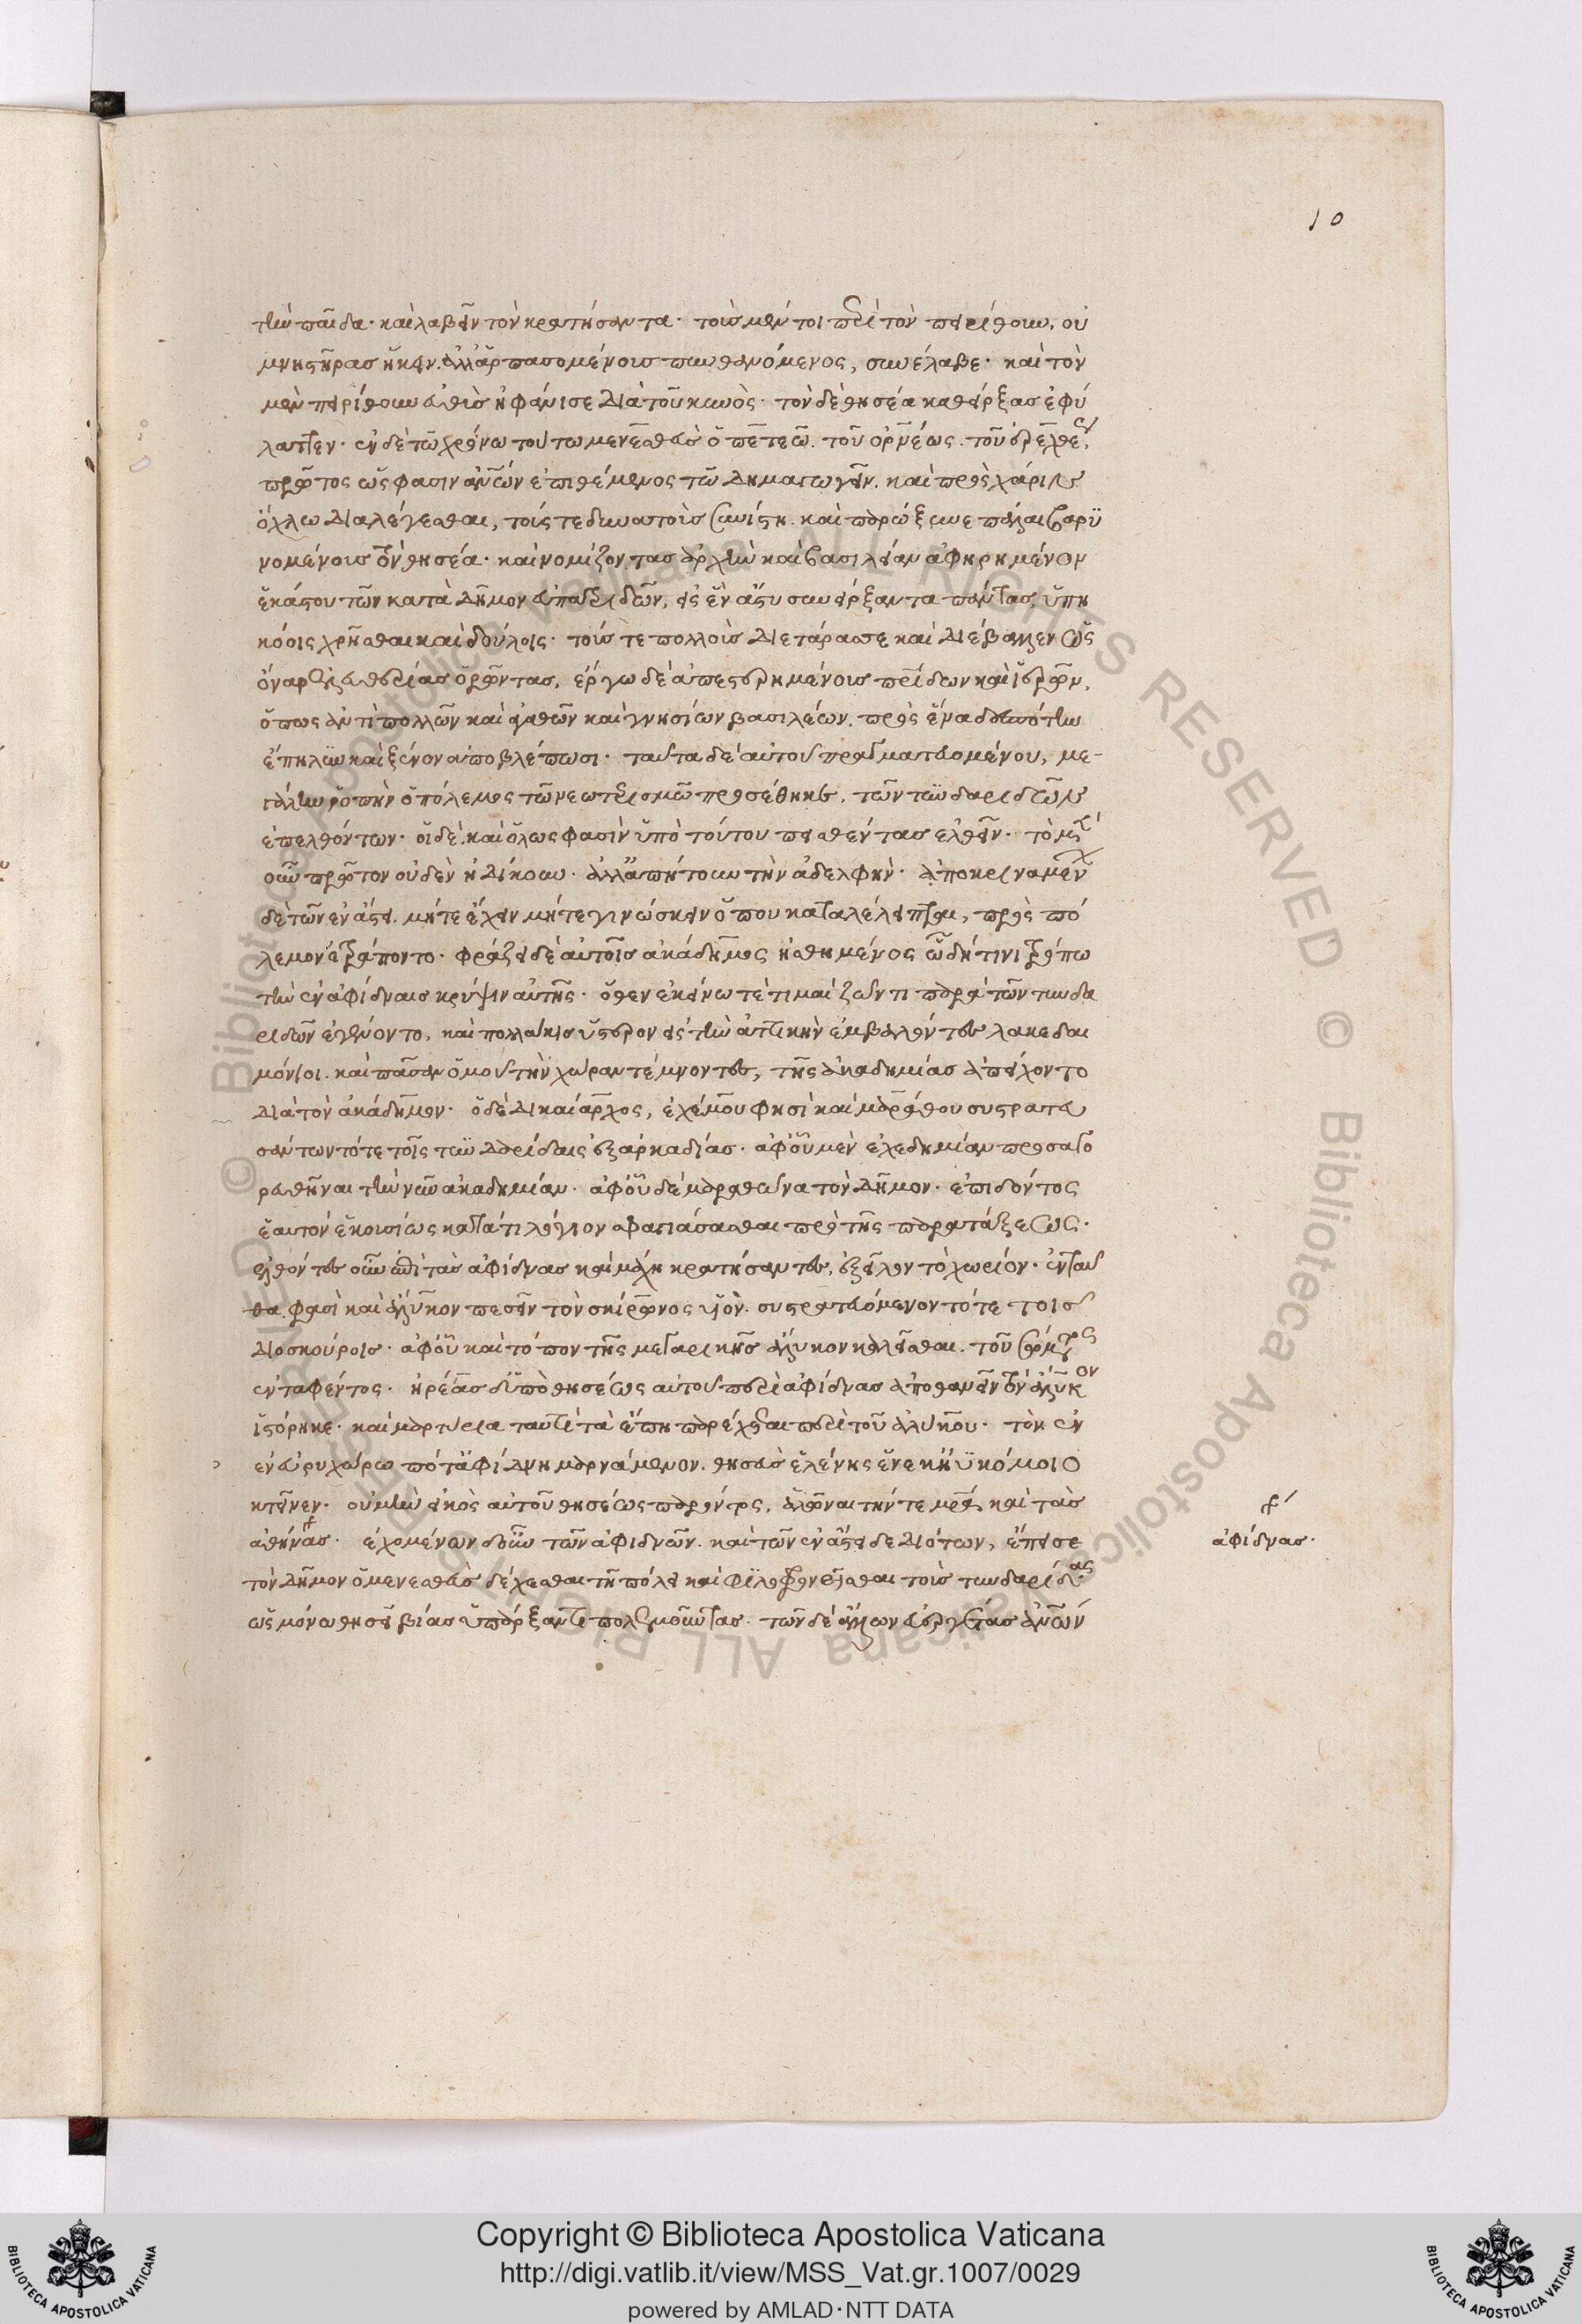 10
τὴν παῖδα· καὶ λαβεῖν τὸν κρατήσαντα· τοὺς μέν τοι περὶ τὸν πειρίθουν, οὐ
μνηστῆρας ἥκειν. ἀλλ' ἁρπασομένους πυνθανόμενος, συνέλαβε· καὶ τὸν
μὲν πειρίθουν εὐθὺς ἠφάνισε διὰ τοῦ κυνὸς· τὸν δὲ θησέα καθείρξας ἐφύ
λαττεν· ἐν δὲ τῷ χρόνω τούτω μενεσθεὺς ὁ πετεῶ. τοῦ ὀρνέως. τοῦ ἐρεχθέως,
πρῶτος ὥς φασιν ἀνθρώπων ἐπιθέμενος τῶ δημαγωγεῖν. καὶ πρὸς χάριν
ὄχλω διαλέγεσθαι, τούς τε δυνατοὺς συνίστη. καὶ παρώξυνε πάλαι βαρυ
νομένους τὸν θησέα· καὶ νομίζοντας ἀρχὴν καὶ βασιλείαν ἀφηρημένον
ἑκάστου τῶν κατὰ δῆμον εὐπατριδῶν, εἰς ἓν ἄστυ συνείρξαντα πάντας, ὑπη
κόοις χρῆσθαι καὶ δούλοις· τούς τε πολλοὺς διετάρασσε καὶ διέβαλλεν ὡς
ὄναρ ἐλευθερίας ὁρῶντας, ἔργω δὲ ἀπεστερημένους πατρίδων καὶ ἱερῶν,
ὅπως ἀντὶ πολλῶν καὶ ἀγαθῶν καὶ γνησίων βασιλέων. πρὸς ἕνα δεσπότην
ἔπηλυν καὶ ξένον ἀποβλέπωσι· ταῦτα δὲ αὐτοῦ πραγματευομένου, με-
γάλην ῥοπὴν ὁ πόλεμος τῶ νεωτερισμῶ προσέθηκε, τῶν τυνδαριδῶν
ἐπελθόντων· οἱ δὲ καὶ ὅλως φασὶν ὑπὸ τούτου πεισθέντας ἐλθεῖν· τὸ μὲν
οὖν πρῶτον οὐδὲν ἠδίκουν· ἀλλ' ἀπήτουν τὴν ἀδελφὴν· ἀποκριναμένων
δὲ τῶν ἐν ἄστει. μήτε ἔχειν μήτε γινώσκειν ὅπου καταλέλειπται, πρὸς πό
λεμον ἐτράποντο· φράζει δὲ αὐτοῖς ἀκάδημος ἠσθημένος ὧ δή τινι τρόπω
τὴν ἐν ἀφίδναις κρύψιν αὐτῆς· ὅθεν ἐκείνω τε τιμαὶ ζῶντι παρὰ τῶν τυνδα
ριδῶν ἐγένοντο, καὶ πολλάκις ὕστερον εἰς τὴν ἀττικὴν ἐμβαλόντες λακεδαι
μόνιοι. καὶ πᾶσαν ὁμοῦ τὴν χώραν τέμνοντες, τῆς ἀκαδημίας ἀπείχοντο
διὰ τὸν ἀκάδημον· ὁ δὲ δικαίαρχος, ἐχέμου φησὶ καὶ μαράθου συστρατευ
σάντων τότε τοῖς τυνδαρίδαις ἐξ ἀρκαδίας· ἀφ' οὗ μὲν ἐχεδημίαν προσαγο
ρευθῆναι τὴν νῦν ἀκαδημίαν· ἀφ' οὗ δὲ μαραθῶνα τὸν δῆμον· ἐπιδόντος
ἑαυτὸν ἑκουσίως κατά τι λόγιον σφαγιάσασθαι πρὸ τῆς παρατάξεως·
ἐλθόντες οὖν ἐπὶ τὰς ἀφίδνας καὶ μάχη κρατήσαντες, ἐξεῖλον τὸ χωρίον· ἐνταῦ
θα. φασὶ καὶ ἄλυκον πεσεῖν τὸν σκίρωνος υἱὸν. συστρατευόμενον τότε τοῖς
διοσκούροις· ἀφ' οὗ καὶ τόπον τῆς μεγαρικῆς ἄλυκον καλεῖσθαι. τοῦ σώματος
ἐνταφέντος· ἡρέας δ' ὑπὸ θησέως αὐτοῦ περὶ ἀφίδνας ἀποθανεῖν τὸν ἄλυκον
ἱστόρηκε· καὶ μαρτύρια ταυτὶ τὰ ἔπη παρέχεται περὶ τοῦ ἀλύκου· τὸν ἐν
ἐν εὐρυχώρω ποτ' ἀφίδνη μαρνάμενον. θησεὺς ἑλένης ἕνεκ' ἠϋκόμοιο
κτεῖνεν· οὐ μὴν εἰκὸς αὐτοῦ θησέως παρόντος, ἁλῶναι τήν τε μητέρα καὶ τὰς
ἀθήνας· ἐχομένων δ' οὖν τῶν ἀφιδνῶν. καὶ τῶν ἐν ἄστει δεδιότων, ἔπεισε
τὸν δῆμον ὁ μενεσθεὺς δέχεσθαι τῆ πόλει καὶ φιλοφρονεῖσθαι τοὺς τυνδαρίδας
ὡς μόνω θησεῖ βίας ὑπάρξαντι πολεμοῦντας· τῶν δὲ ἄλλων εὐεργέτας ἀνθρώπων
γρ
ἀφίδνας·
Copyright © Biblioteca Apostolica Vaticana
http://digi.vatlib.it/view/MSS_Vat.gr.1007/0029
powered by AMLAD·NTT DATA